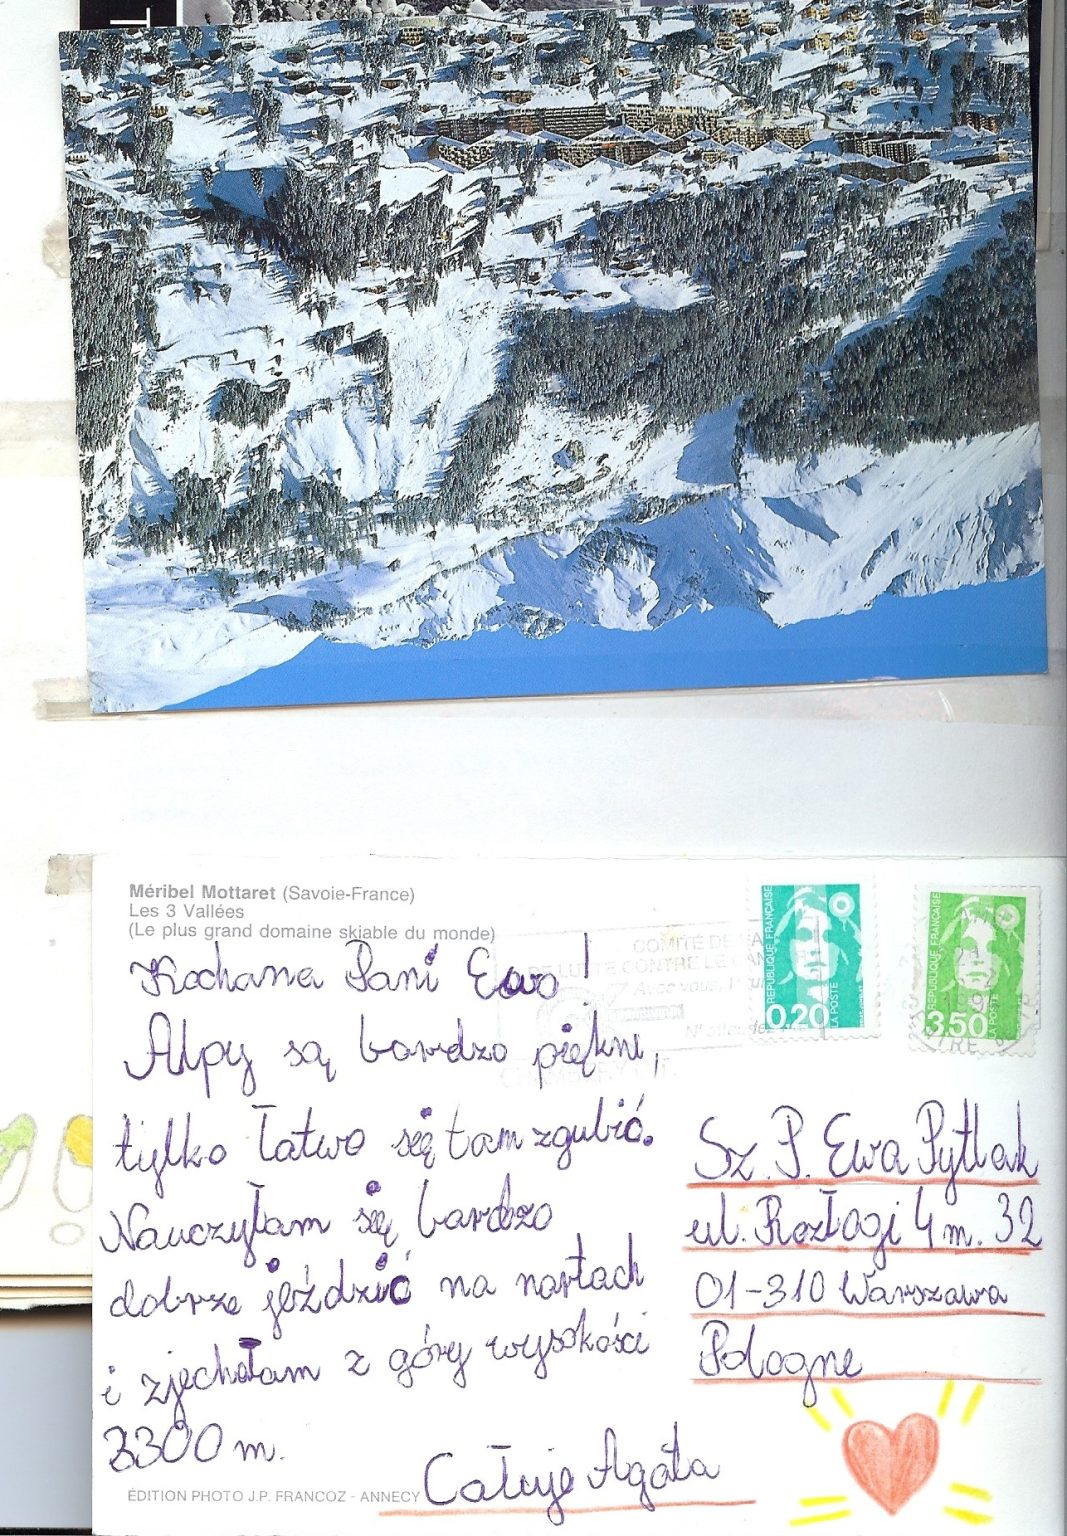 T
Méribel Mottaret (Savoie-France)
Les 3 Vallées
(Le plus grand domaine skiable du monde)
Kochana Pani Ewo!
Alpy są bardzo piękne,
tylko łatwo się tam zgubić.
Nauczyłam się bardzo
dobrze jeździć na nartach
i zjechałam z góry wysokości
3300 m.
Całuję Agata
ÉDITION PHOTO J.P. FRANCOZ - ANNECY
COMITÉ DE
LUTTE CONTRE LE
Avec vous,
RÉPUBLIQUE FRANÇAISE
0,20
LA POSTE
RÉPUBLIQUE FRANÇAISE
3,50
LA POSTE
Sz. P. Ewa Pytlak
ul. Rozłogi 4 m. 32
01-310 Warszawa
Pologne